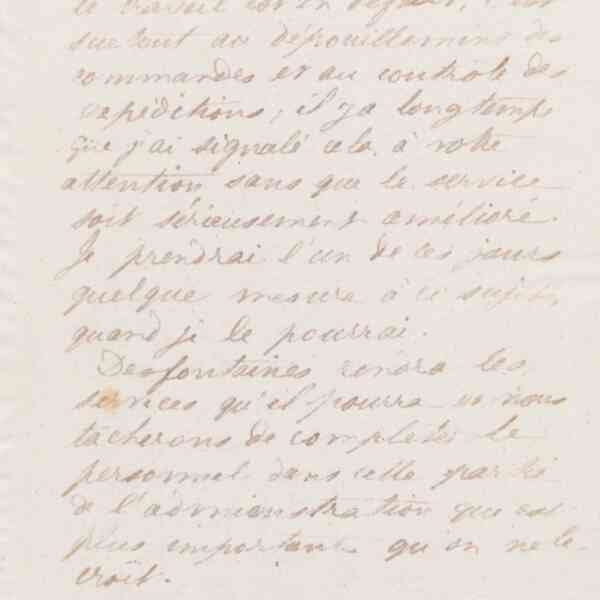 le travail est en défaut, c'est
surtout au dépouillement des
commandes et au contrôle des
expéditions; il y a longtemps
que j'ai signalé cela à votre
attention sans que le service
soit sérieusement amélioré.
Je prendrai l'un de ces jours
quelque mesure à ce sujet,
quand je le pourrai.
Desfontaines rendra les
services qu'il pourra et nous
tâcherons de compléter le
personnel dans cette partie
de l'administration qui est
plus importante qu'on ne le
croit.